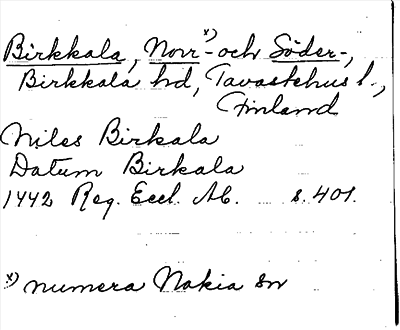 Birkkala, Norr-x) och Söder-,
Birkkala hd, Tavastehus l.,
Finland
Niles Birkala
Datum Birkala
1442 Reg. Eccl. Ab. s. 401.
x) numera Nokia sn